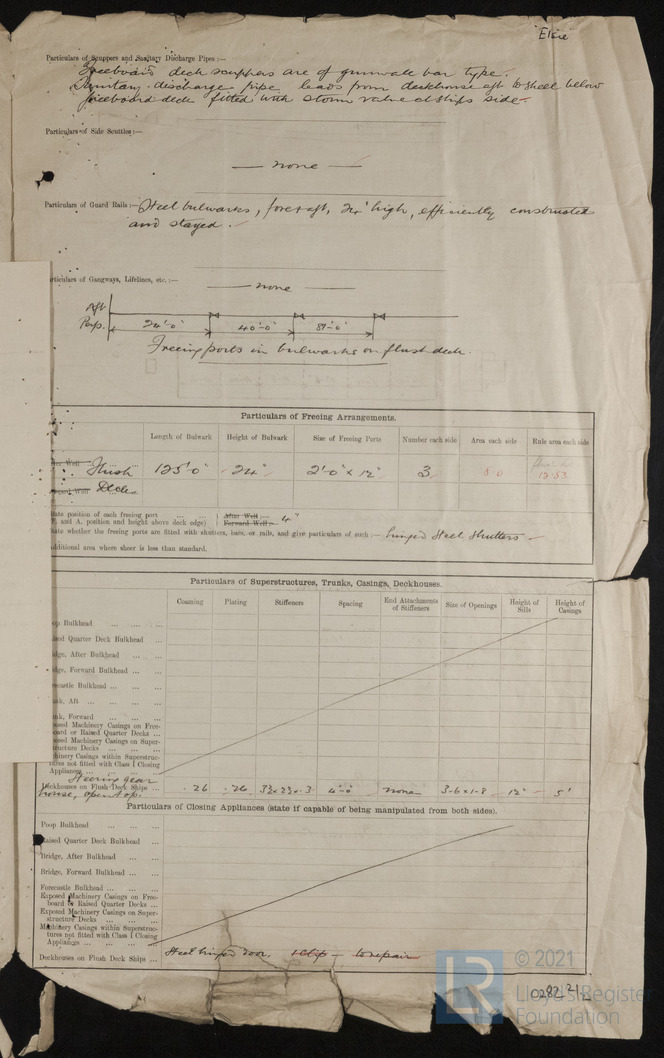 "Elsie"
Particulars of Scuppers and Sanitary Discharge Pipes :—
Freeboard deck scuppers are of gunwale bar type.
Sanitary discharge pipe leads from deckhouse aft to shell below
freeboard deck fitted with storm valve at ships side
Particulars of Side Scuttles :—
— none —
Particulars of Guard Rails :— Steel bulwarks, fore & aft, 24" high, efficiently constructed
and stayed.
rticulars of Gangways, Lifelines, etc. :—
— none
Aft
Perp.
24'-0" 40'-0" 87'-0"
Freeing ports in bulwarks on flush deck.
Particulars of Freeing Arrangements.
Length of Bulwark Height of Bulwark Size of Freeing Ports Number each side Area each side Rule area each side
Flush 125'-0" 24" 2'-0" x 12" 3 6.0 12.53
Deck
tate position of each freeing port ... ... After Well :— 4"
F. and A. position and height above deck edge) Forward Well :—
tate whether the freeing ports are fitted with shutters, bars, or rails, and give particulars of such :— hinged Steel Shutters —
dditional area where sheer is less than standard.
Particulars of Superstructures, Trunks, Casings, Deckhouses.
Coaming Plating Stiffeners Spacing End Attachments of Stiffeners Size of Openings Height of Sills Height of Casings
op Bulkhead ... ... ...
ised Quarter Deck Bulkhead ...
idge, After Bulkhead ... ...
idge, Forward Bulkhead ... ...
recastle Bulkhead ... ... ...
nk, Aft ... ... ...
nk, Forward ... ... ...
osed Machinery Casings on Free-
oard or Raised Quarter Decks ...
osed Machinery Casings on Super-
ructure Decks ... ... ...
hinery Casings within Superstruc-
tures not fitted with Class I Closing
Appliances ... ... ...
Steering gear
Deckhouses on Flush Deck Ships ... .26 .26 4'-0" none 3-6 x 1-8 12" 5'
house, open top.
Particulars of Closing Appliances (state if capable of being manipulated from both sides).
Poop Bulkhead ... ... ...
Raised Quarter Deck Bulkhead ...
Bridge, After Bulkhead ... ...
Bridge, Forward Bulkhead ... ...
Forecastle Bulkhead ... ... ...
Exposed Machinery Casings on Free-
board or Raised Quarter Decks ...
Exposed Machinery Casings on Super-
structure Decks ... ... ...
Machinery Casings within Superstruc-
tures not fitted with Class I Closing
Appliances ... ... ...
Deckhouses on Flush Deck Ships ... Steel hinged door. 1 clip — to repair
LR © 2021
Lloyd's Register
Foundation